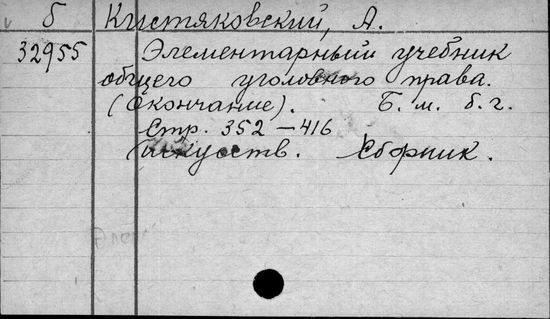 б Кистяковский, А.
32955 Элементарный учебник
общего уголовного права.
(Окончание). Б. м. б. г.
Стр. 352 — 416
искусств. Сборник.